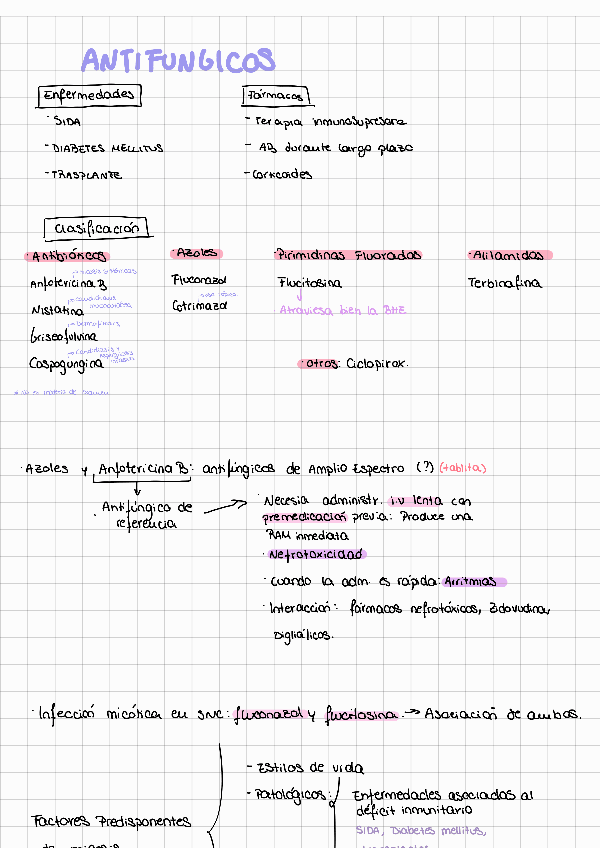 ANTIFUNGICOS
Enfermedades
Fármacos
· SIDA
- Terapia inmunosupresora
- DIABETES MELLITUS
- AB durante largo plazo
- TRASPLANTE
- Corticoides
Clasificación
· Antibióticos
· Azoles
· Pirimidinas Fluoradas
· Alilamidas
Anfotericina B
Fluconazol
Flucitosina
Terbinafina
Nistatina
Cotrimazol
Atraviesa bien la BHE
Griseofulvina
Caspogungina
· otros: Ciclopirox.
* No es materia de examen
· Azoles y Anfotericina B: antifúngicos de Amplio Espectro (?) (tablita)
· Antifúngico de
referencia
· Necesia administr. i.v lenta con
premedicación previa: Produce una
RAM inmediata
· Nefrotoxicidad
· Cuando la adm. es rápida: Arritmias
· Interacción: fármacos nefrotóxicos, Zidovudina,
Digitálicos.
· Infección micótica en SNC: fluconazol y flucitosina. → Asociación de ambos.
- Estilos de vida
- Patológicos:
Enfermedades asociadas al
déficit inmunitario
Factores Predisponentes
SIDA, Diabetes mellitus,